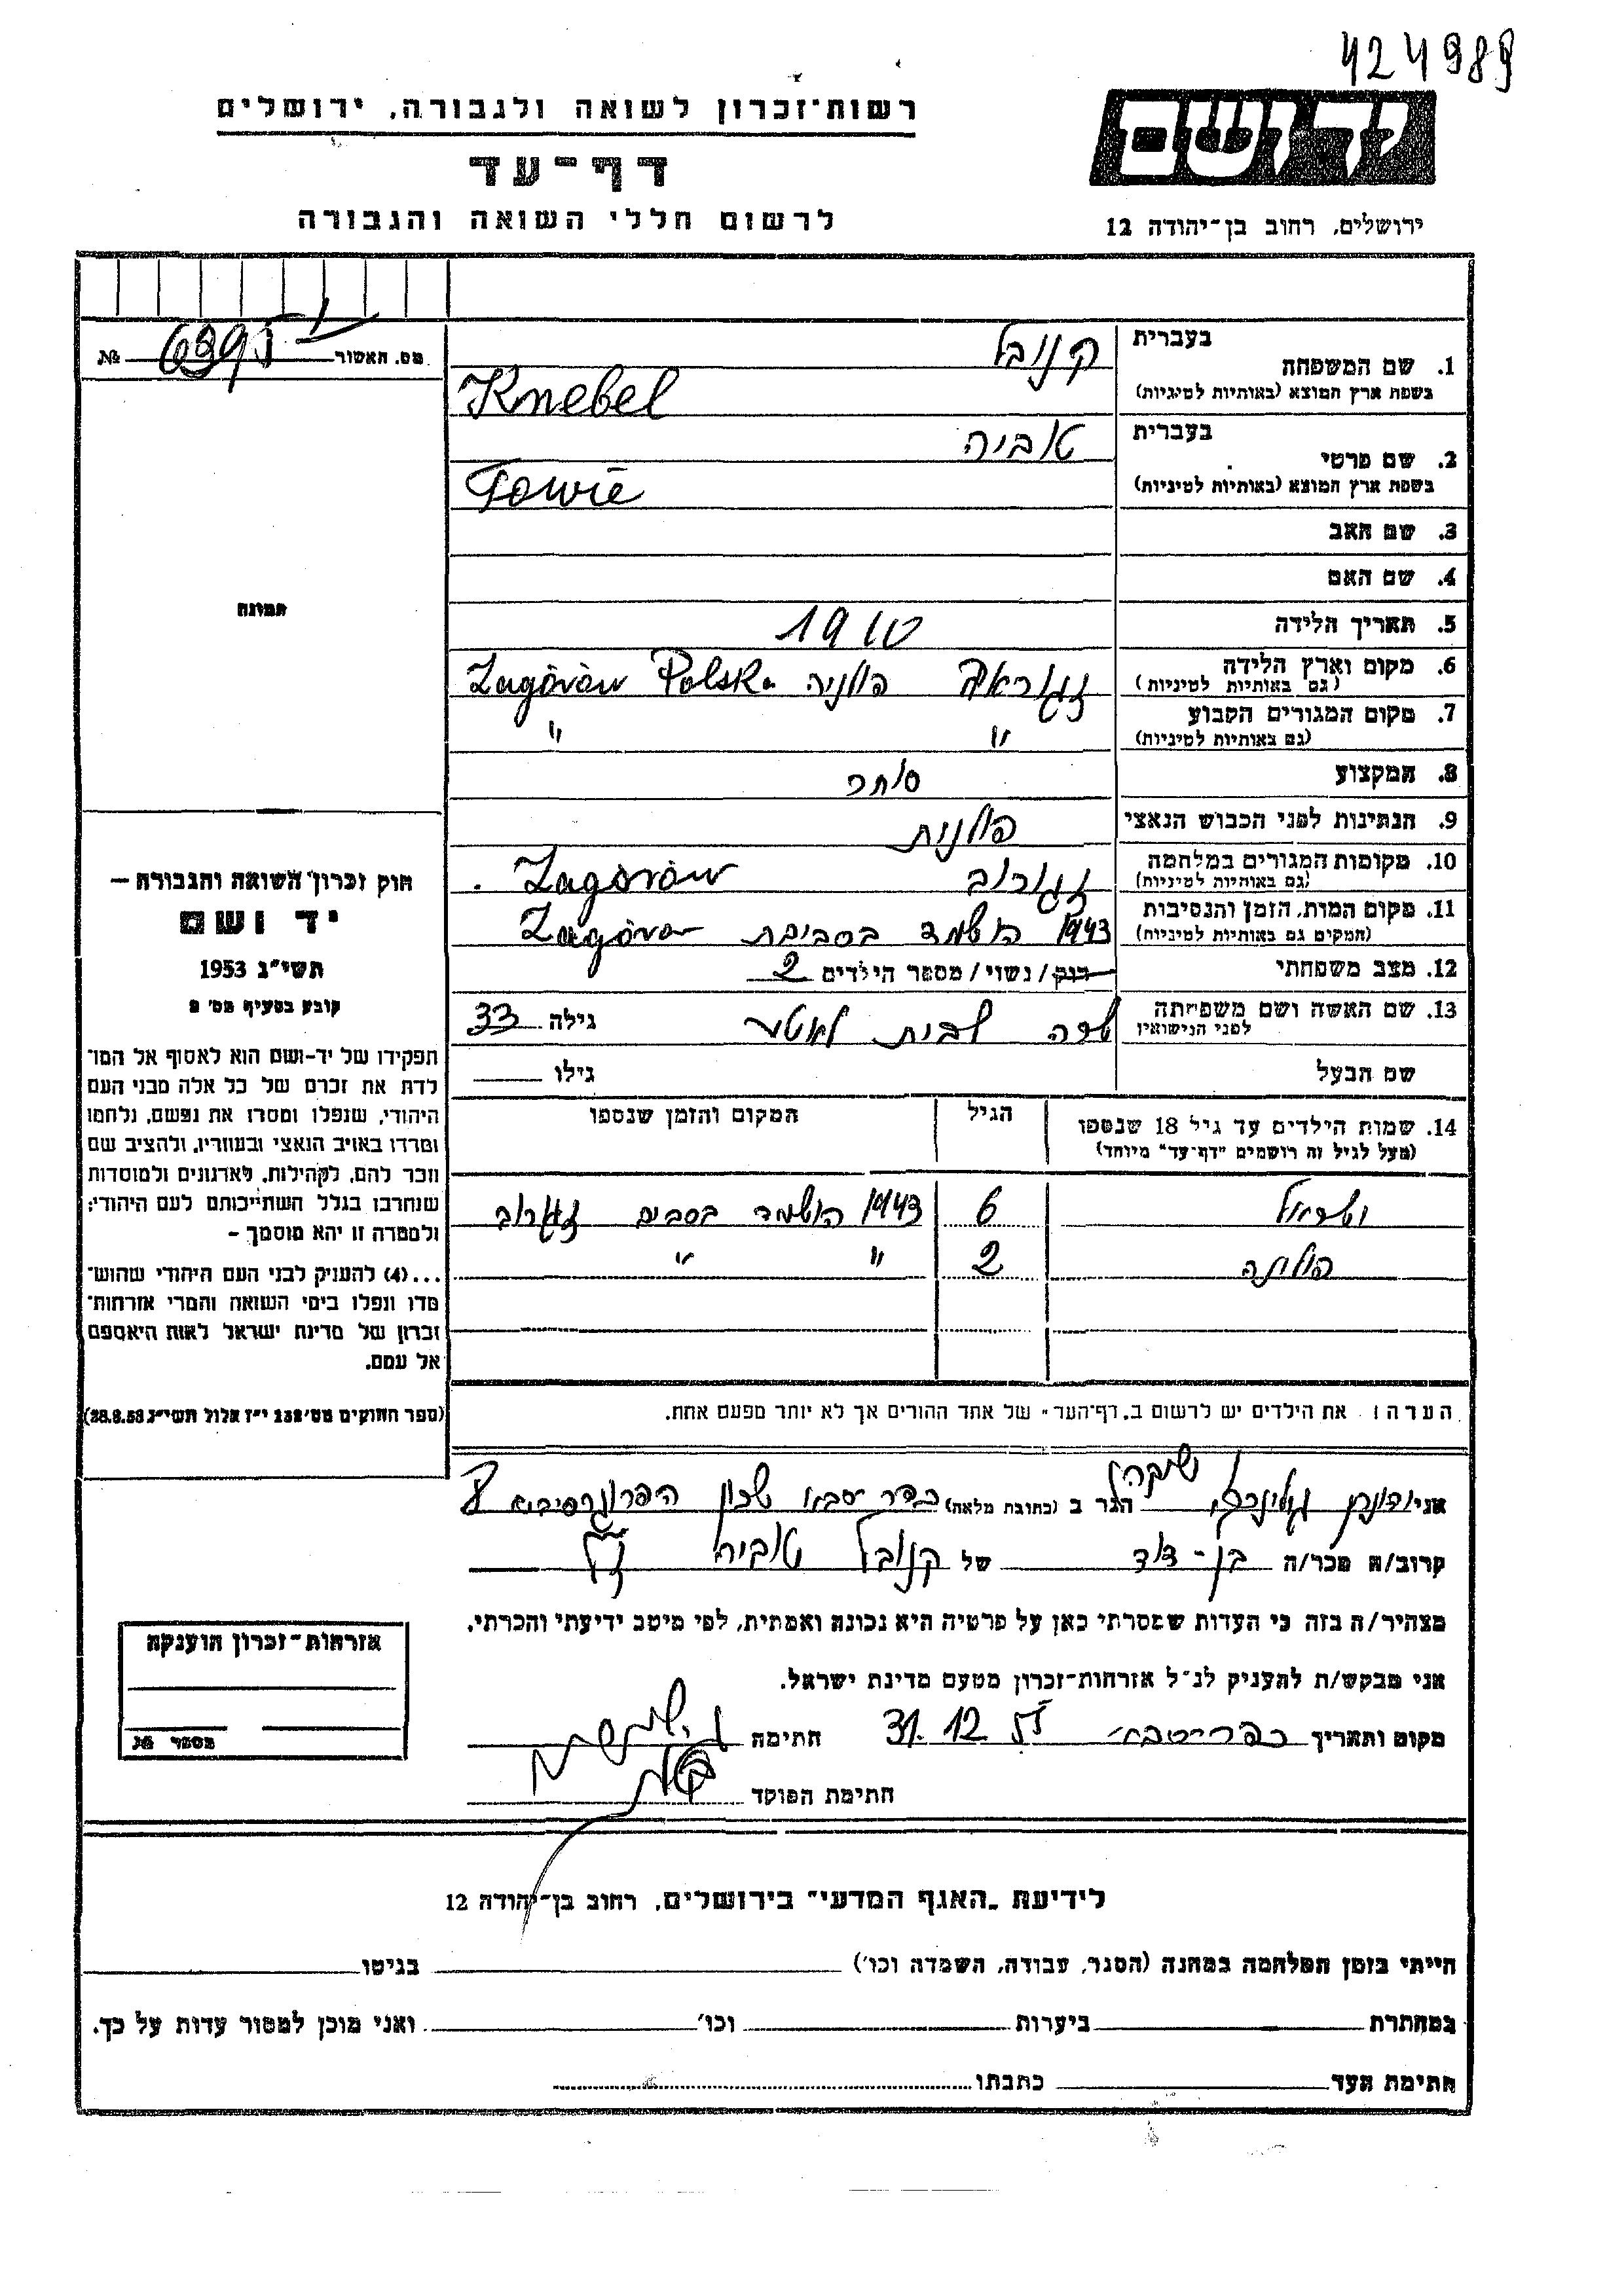 424989
רשות-זכרון לשואה ולגבורה, ירושלים
דף-עד
לרשום חללי השואה והגבורה
יד ושם
ירושלים, רחוב בן-יהודה 12
מס. האשור № 6395
תמונה
1. שם המשפחה
בעברית קנובל
בשפת ארץ המוצא (באותיות לטיניות) Knebel
2. שם פרטי
בעברית טוביה
בשפת ארץ המוצא (באותיות לטיניות) Towie
3. שם האב
4. שם האם
5. תאריך הלידה 1910
6. מקום וארץ הלידה פולניה Zagórów Polska
(גם באותיות לטיניות)
7. מקום המגורים הקבוע " "
(גם באותיות לטיניות)
8. המקצוע סוחר
9. הנתינות לפני הכבוש הנאצי פולנית
10. מקומות המגורים במלחמה זגורוב Zagórów
(גם באותיות לטיניות)
11. מקום המות, הזמן והנסיבות 1943 הושמד בסביבת
(המקום גם באותיות לטיניות)
12. מצב משפחתי רוק / נשוי / מספר הילדים 2
13. שם האשה ושם משפחתה לבית גילה 33
לפני הנישואין
שם הבעל גילו
14. שמות הילדים עד גיל 18 שנספו הגיל המקום והזמן שנספו
(מעל לגיל זה רושמים "דף-עד" מיוחד)
6 1943 הושמד בסביבת זגורוב
2 " "
הערה: את הילדים יש לרשום ב„דף-העד" של אחד ההורים אך לא יותר מפעם אחת.
חוק זכרון השואה והגבורה —
יד ושם
תשי"ג 1953
קובע בסעיף מס' 2
תפקידו של יד-ושם הוא לאסוף אל המו-
לדת את זכרם של כל אלה מבני העם
היהודי, שנפלו ומסרו את נפשם, נלחמו
ומרדו באויב הנאצי ובעוזריו, ולהציב שם
וזכר להם, לקהילות, לארגונים ולמוסדות
שנחרבו בגלל השתייכותם לעם היהודי;
ולמטרה זו יהא מוסמך —
...(4) להעניק לבני העם היהודי שהוש-
מדו ונפלו בימי השואה והמרי אזרחות-
זכרון של מדינת ישראל לאות היאספם
אל עמם.
(ספר החוקים מס' 132 י"ז אלול תשי"ג 28.8.53)
אני הגר ב (כתובת מלאה) כפר סבא שכון הפרוגרסיבית 8
קרוב/ה מכר/ה בן-דוד של קנובל טוביה ז"ל
מצהיר/ה בזה כי העדות שמסרתי כאן על פרטיה היא נכונה ואמתית, לפי מיטב ידיעתי והכרתי.
אני מבקש/ת להעניק לנ"ל אזרחות-זכרון מטעם מדינת ישראל.
מקום ותאריך כפר סבא 31.12.55 חתימה
חתימת הפוקד
אזרחות-זכרון הוענקה
מספר מס
לידיעת „האגף המדעי" בירושלים, רחוב בן-יהודה 12
הייתי בזמן המלחמה במחנה (הסגר, עבודה, השמדה וכו') בגיטו
במחתרת ביערות וכו' ואני מוכן למסור עדות על כך.
חתימת העד כתבתו